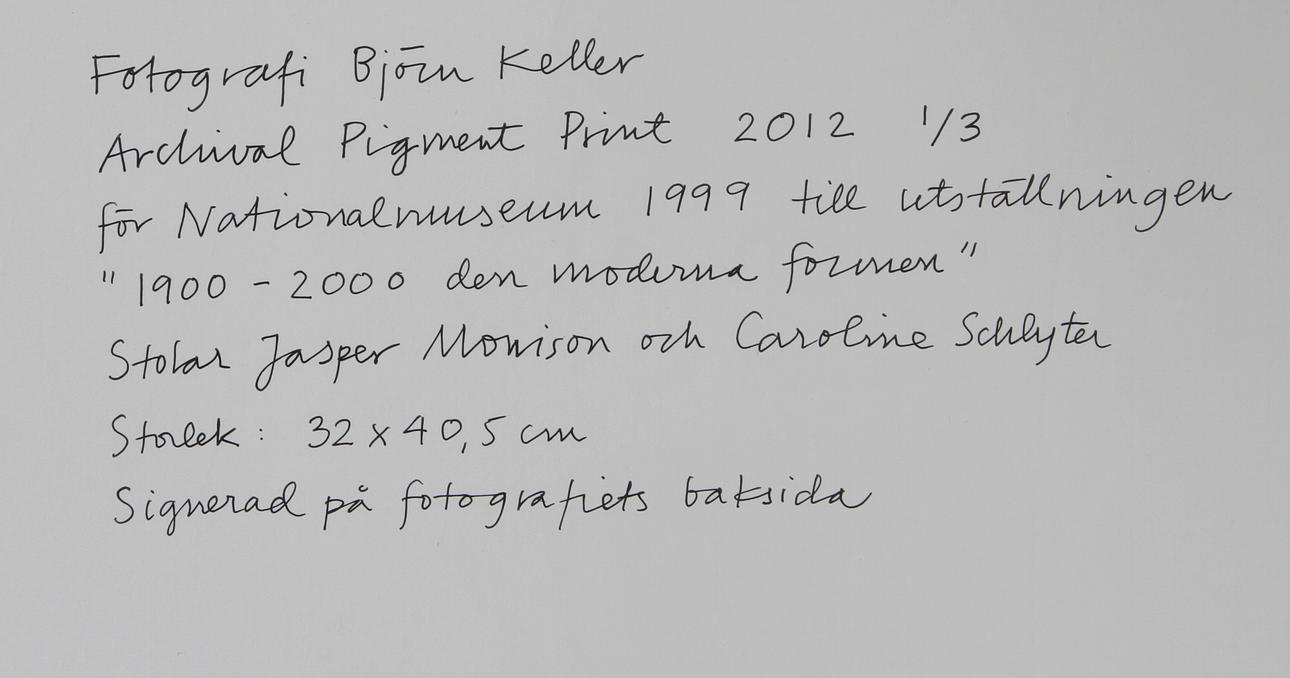 Fotografi Björn Keller
Archival Pigment Print 2012 1/3
för Nationalmuseum 1999 till utställningen
"1900 - 2000 den moderna formen"
Stolar Jasper Morrison och Caroline Schlyter
Storlek: 32 x 40,5 cm
Signerad på fotografiets baksida